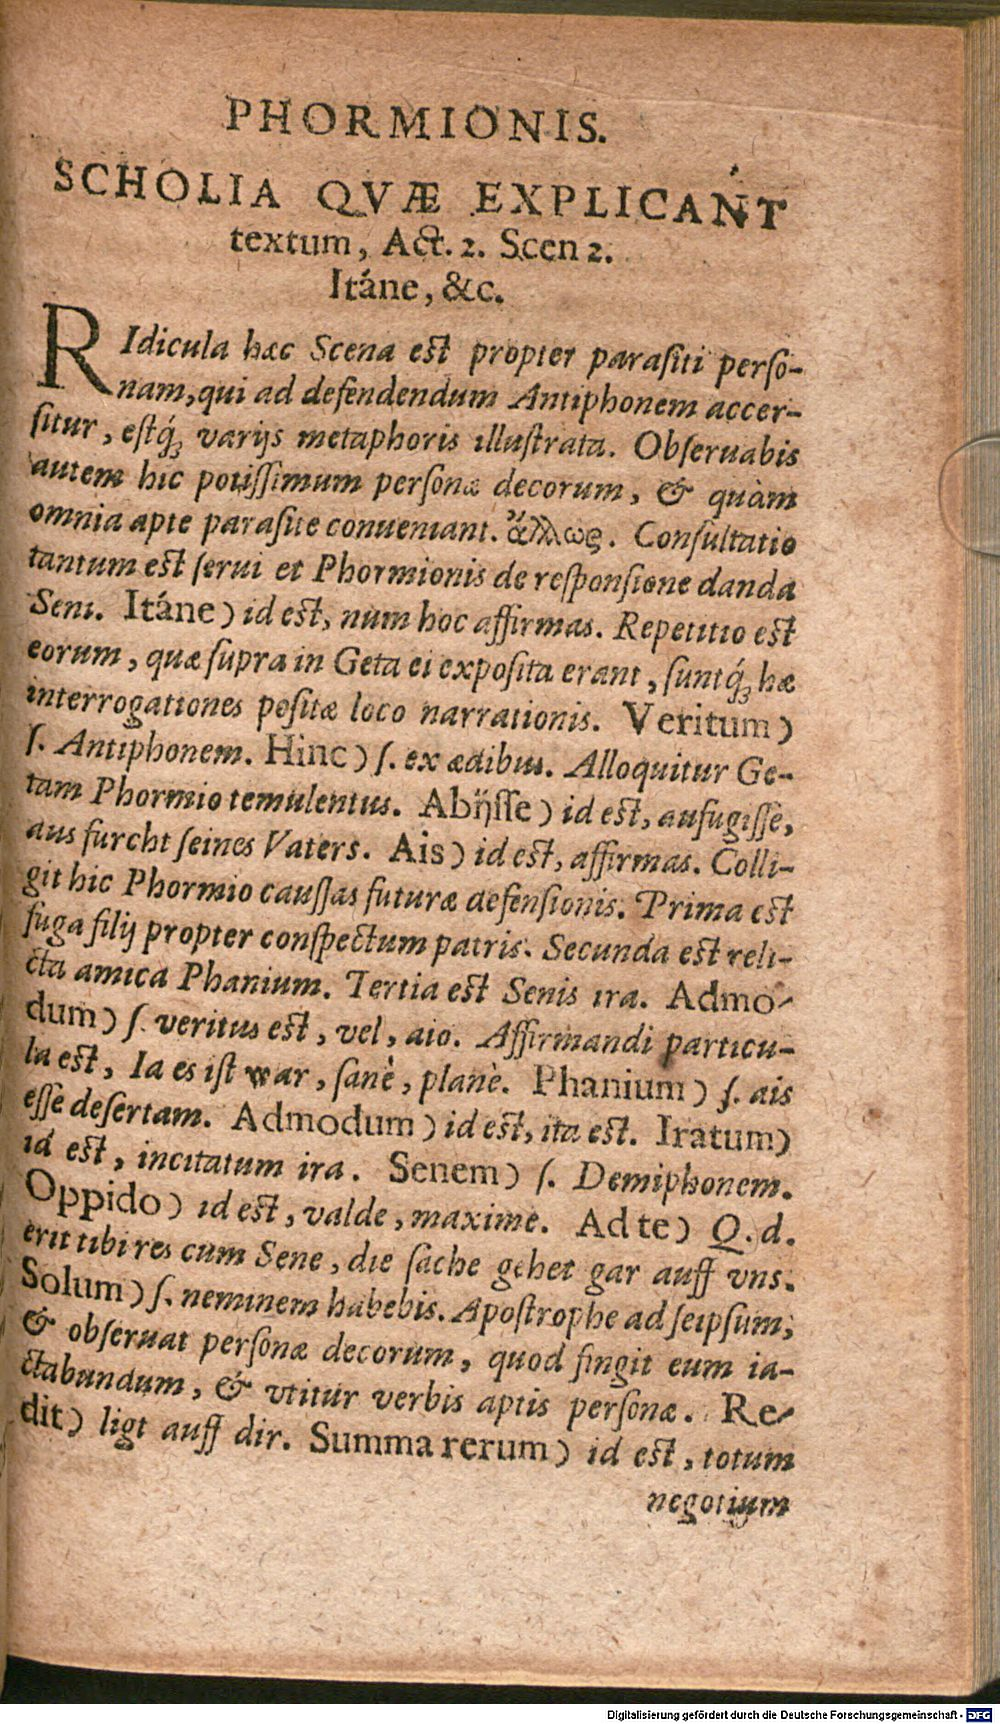 PHORMIONIS.
SCHOLIA QVÆ EXPLICANT
textum, Act. 2. Scen 2.
Itáne, &c.
RIdicula hæc Scena est propter parasiti perso-
nam, qui ad defendendum Antiphonem accer-
situr, estq́; varijs metaphoris illustrata. Obseruabis
autem hic potissimum personæ decorum, & quàm
omnia apte parasite conueniant. ἄλλως. Consultatio
tantum est serui et Phormionis de responsione danda
Seni. Itáne) id est, num hoc affirmas. Repetitio est
eorum, quæ supra in Geta ei exposita erant, suntq́; hæ
interrogationes positæ loco narrationis. Veritum)
s. Antiphonem. Hinc) s. ex ædibus. Alloquitur Ge-
tam Phormio temulentus. Abijsse) id est, aufugisse,
aus furcht seines Vaters. Ais) id est, affirmas. Colli-
git hic Phormio caussas futuræ defensionis. Prima est
fuga filij propter conspectum patris. Secunda est reli-
cta amica Phanium. Tertia est Senis ira. Admo-
dum) s. veritus est, vel, aio. Affirmandi particu-
la est, Ia es ist war, sanè, planè. Phanium) s. ais
esse desertam. Admodum) id est, ita est. Iratum)
id est, incitatum ira. Senem) s. Demiphonem.
Oppido) id est, valde, maxime. Ad te) Q. d.
erit tibi res cum Sene, die sache gehet gar auff vns.
Solum) s. neminem habebis. Apostrophe ad seipsum,
& obseruat personæ decorum, quod fingit eum ia-
ctabundum, & vtitur verbis aptis personæ. Re-
dit) ligt auff dir. Summa rerum) id est, totum
negotium
Digitalisierung gefördert durch die Deutsche Forschungsgemeinschaft - DFG